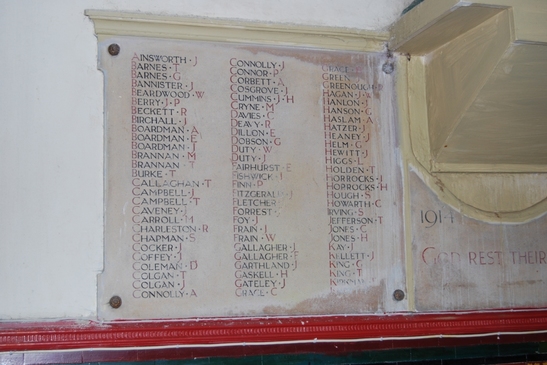 AINSWORTH · J
BARNES · T
BARNES · G
BANNISTER · J
BEARDWOOD · W
BERRY · J · P
BECKETT · R
BIRCHALL · J
BOARDMAN · A
BOARDMAN · E
BOARDMAN · J
BRANNAN · M
BRANNAN · T
BURKE · T
CALLAGHAN · T
CAMPBELL · J
CAMPBELL · T
CAVENEY · J
CARROLL · M
CHARLESTON · R
CHAPMAN · S
COCKER · J
COFFEY · J
COLEMAN · D
COLGAN · T
COLGAN · J
CONNOLLY · A
CONNOLLY · J
CONNOR · P
CORBETT · A
COSGROVE · J
CUMMINS · J · H
CRYNE · M
DAVIES · C
DEAVY · R
DILLON · E
DOBSON · G
DUTY · W
DUTY · J
FAIRHURST · E
FISHWICK · J
FINN · P
FITZGERALD · J
FLETCHER
FORREST ·
FOY · J
FRAIN · J
FRAIN · W
GALLAGHER · J
GALLAGHER · F
GARTHLAND · J
GASKELL · H
GATELEY · J
GRACE · C
GRACE
GREEN
GREENOUGH
HAGAN · J
HANLON · J
HANSON · G
HASLAM · A
HATZER · J
HEANEY · J
HELM · G
HEWITT · J
HIGGS · L
HOLDEN · T
HORROCKS · J
HORROCKS · H
HOUGH · S
HOWARTH · C
IRVING · S
JEFFERSON · T
JONES · C
JONES · H
KAY · J
KELLETT · J
KING · G
KING · T
1914
GOD REST THEIR